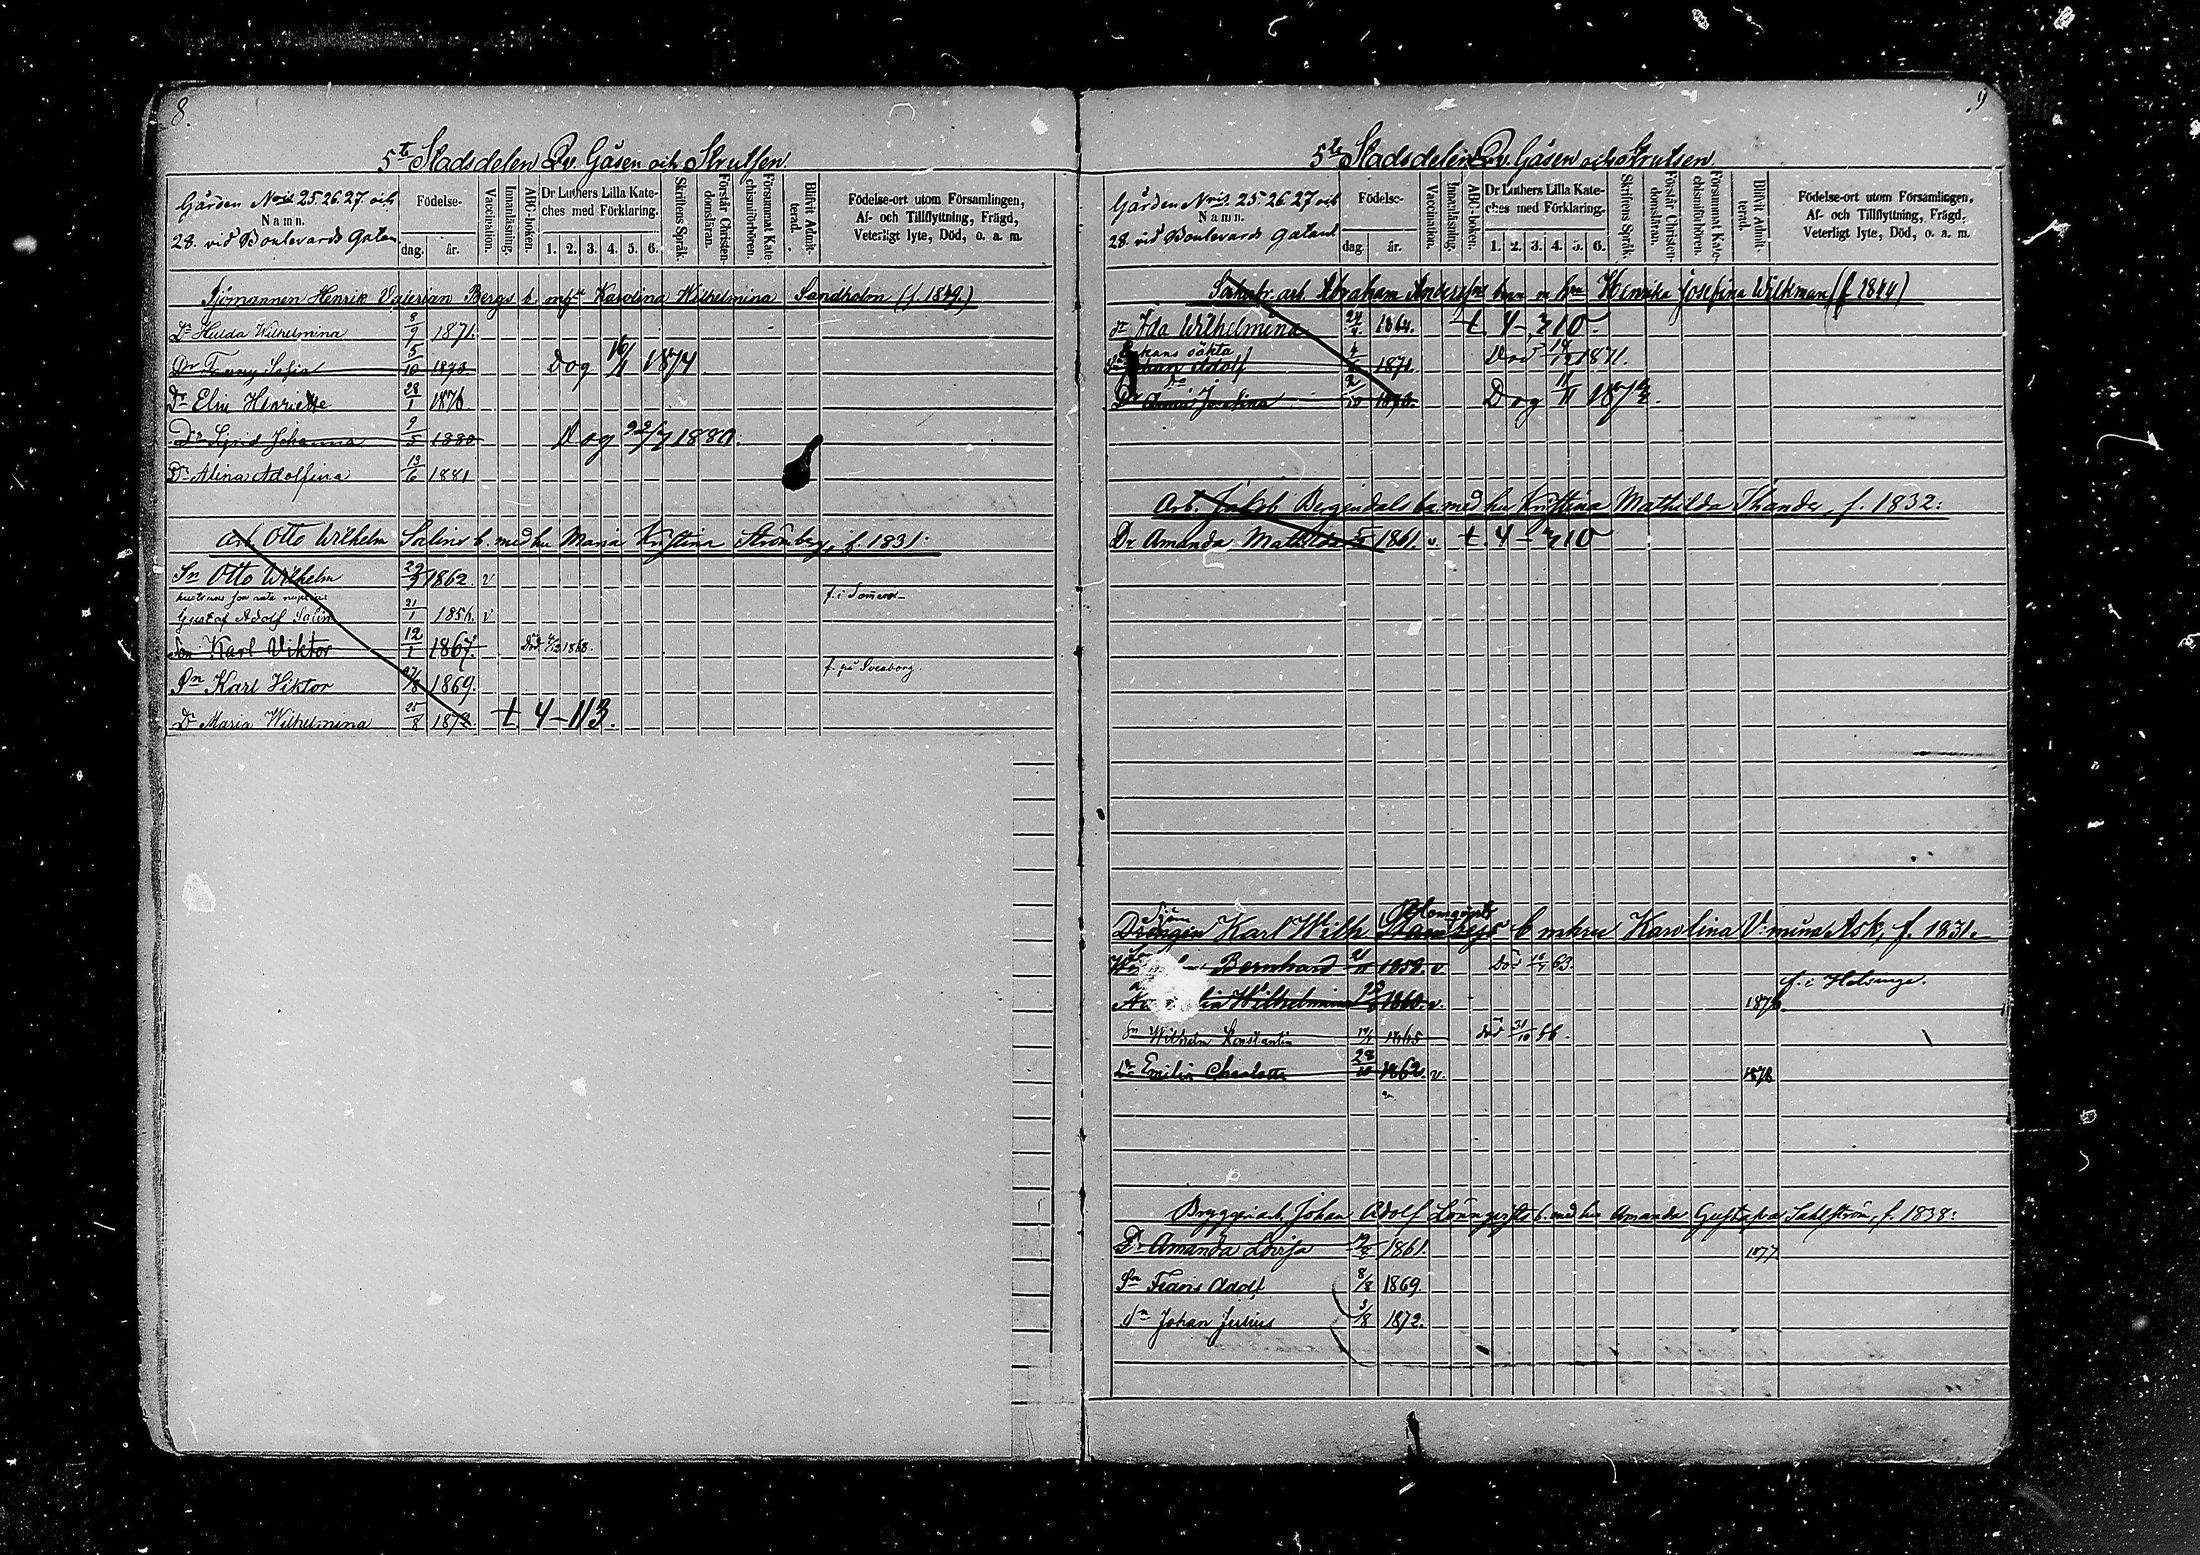 8.
5te Stadsdelen Qv. Gåsen och Strutsen
Gården Nris 25.26.27. och
Namn.
28. vid Boulevards Gatan
Födelse-
dag.
år.
Vaccination.
Innanläsning.
ABC-boken.
Dr Luthers Lilla Kate-
ches med Förklaring.
1. 2. 3. 4. 5. 6.
Skriftens Språk.
Förstår Christen-
domsläran.
Försummat Kate-
chismiförhören.
Blifvit Admit-
terad.
Födelse-ort utom Församlingen,
Af- och Tillflyttning, Frägd,
Veterligt lyte, Död, o. a. m.
Sjömannen Henrik Valerian Bergs b. Karolina Wilhelmina Sandholm (f. 1849.)
Dr Hulda Wilhelmina 8/9 1871.
Dr Fanny Sofia 5/10 1873 Dog 16/1 1874
Dr Elin Henriette 28/1 1876.
Dr Sigrid Johanna 9/5 1880 Dog 22/7 1880.
Dr Alina Adolfina 13/6 1881
Arb Otto Wilhelm Salins b. med hu Maria Kristina Strömberg, f. 1831:
Sn Otto Wilhelm 29/3 1862 v
Gustaf Adolf Salin 21/1 1856. v f. i Somero
Son Karl Viktor 12/1 1867. Död 1868.
Sn Karl Viktor 27/8 1869. f. på Sveaborg.
Dr Maria Wilhelmina 25/8 1872 t 4-113.
9
5te Stadsdelen Qv. Gåsen och Strutsen
Gården Nris 25.26.27 och
Namn.
28. vid Boulevards Gatan
Födelse-
dag.
år.
Vaccination.
Innanläsning.
ABC-boken.
Dr Luthers Lilla Kate-
ches med Förklaring.
1. 2. 3. 4. 5. 6.
Skriftens Språk.
Förstår Christen-
domsläran.
Försummat Kate-
chismiförhören.
Blifvit Admit-
terad.
Födelse-ort utom Församlingen,
Af- och Tillflyttning, Frägd,
Veterligt lyte, Död, o. a. m.
arb Abraham Anderssons barn m hu Henrika Josefina Wilkman (f 1844)
dr Ida Wilhelmina 24/4 1864. t 4-310.
hans oäkta
Johan Adolf 1871. Död 1871.
Do
Dr Anna Josefina 2/10 Dog 11/11 187
Arb. Jakob Bergendals ba med hu Kristina Mathilda Thander, f. 1832:
Dr Amanda Mathilda 1861. v. t. 4-310
Sjöm Blomqvists
Drängen Karl Wilh b m hu Karolina V:mina Ask, f. 1831.
Bernhard 21/11 1858. v Död 63.
Wilhelmina 1860. v. 1876. f. i Helsinge.
Sn Wilhelm Konstantin 1865 död 31/10 66.
Dr Emilia Charlotta 28/10 1862. v. 1878
Bryggeriarb. Johan Adolf Lönnqvists b. med hu Amanda Gustava Sahlström, f. 1838:
Dr Amanda Lovisa 1861. 1877
Sn Frans Adolf 8/8 1869.
Sn Johan Julius 3/8 1872.